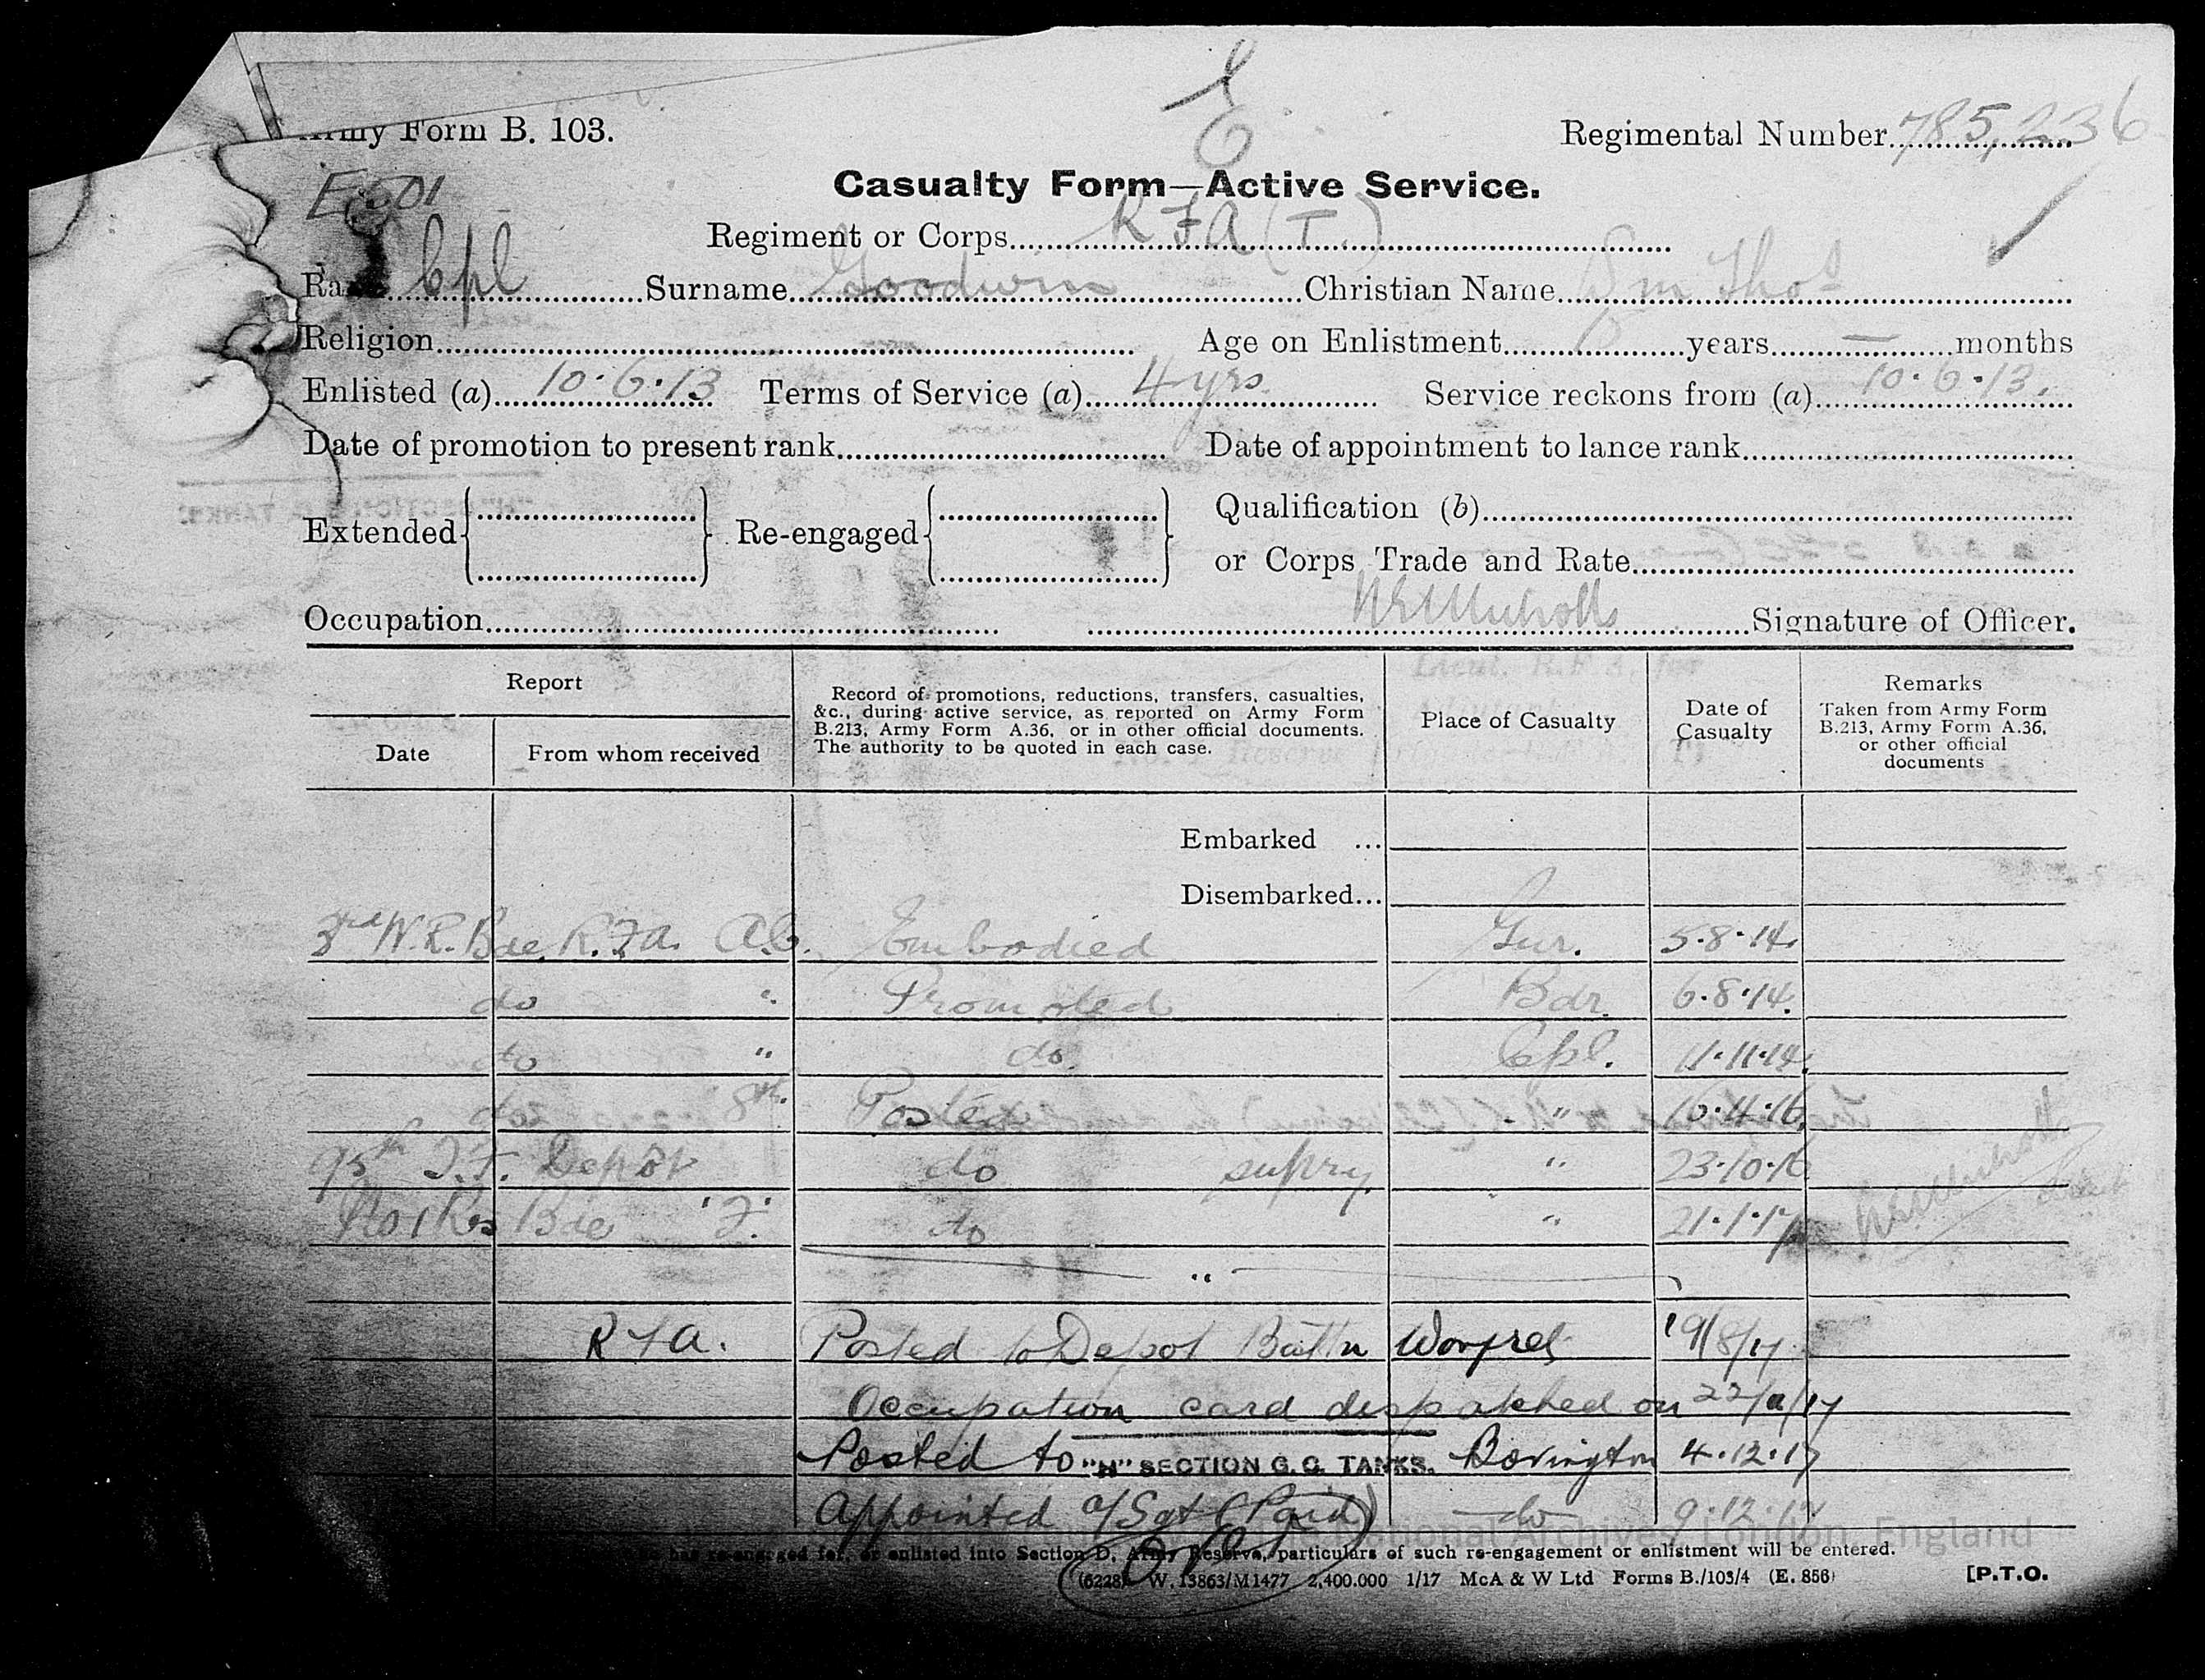 E
Army Form B. 103.
Regimental Number 785,236
E501
Casualty Form—Active Service.
Regiment or Corps R F A (T.)
Rank Cpl Surname Goodwin Christian Name Wm Thos
Religion Age on Enlistment years — months
Enlisted (a) 10·6·13 Terms of Service (a) 4 yrs Service reckons from (a) 10·6·13.
Date of promotion to present rank Date of appointment to lance rank
Extended Re-engaged Qualification (b)
or Corps Trade and Rate
Occupation Signature of Officer.
Report
Date
From whom received
Record of promotions, reductions, transfers, casualties,
&c., during active service, as reported on Army Form
B.213, Army Form A.36, or in other official documents.
The authority to be quoted in each case.
Place of Casualty
Date of
Casualty
Remarks
Taken from Army Form
B.213, Army Form A.36,
or other official
documents
Embarked ...
Disembarked...
3rd W.R. Bde. R.F.A. Embodied Gnr. 5·8·14.
do " Promoted Bdr. 6·8·14.
do " do Cpl. 11·11·14.
do 8th. Posted "
T.F. Depot do supry. " 23·10·16
Bde 'F.' do " 21·1·17
"
R F A. Posted to Depot Battn 19/8/17
Occupation card dispatched on 22/ /17
Posted to "H" SECTION G.C. TANKS. Bovington 4·12·17
Appointed a/Sgt (Paid) —do— 9·12·17
National Archives, London, England
has re-engaged for, or enlisted into Section D, Army Reserve, particulars of such re-engagement or enlistment will be entered.
(6228) W. 13863/M1477 2,400.000 1/17 McA & W Ltd Forms B./103/4 (E. 856)
[P.T.O.